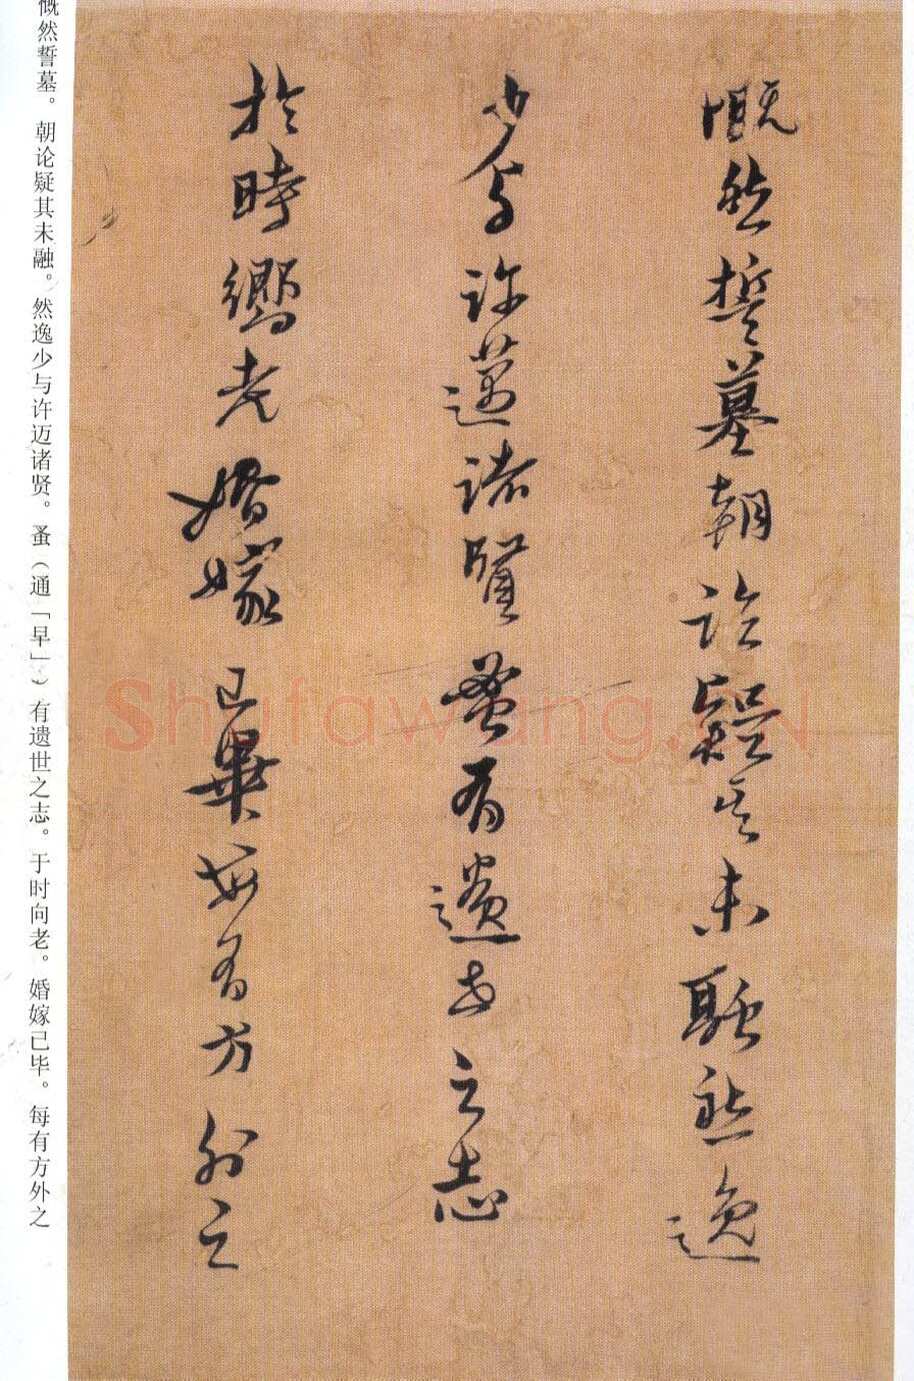 慨然誓墓朝論疑其未融然逸
少与許邁諸賢蚤有遺世之志
於時嚮老婚嫁已畢每有方外之
慨然誓墓。朝论疑其未融。然逸少与许迈诸贤。蚤（通「早」）有遗世之志。于时向老。婚嫁已毕。每有方外之
Shufawang.CN